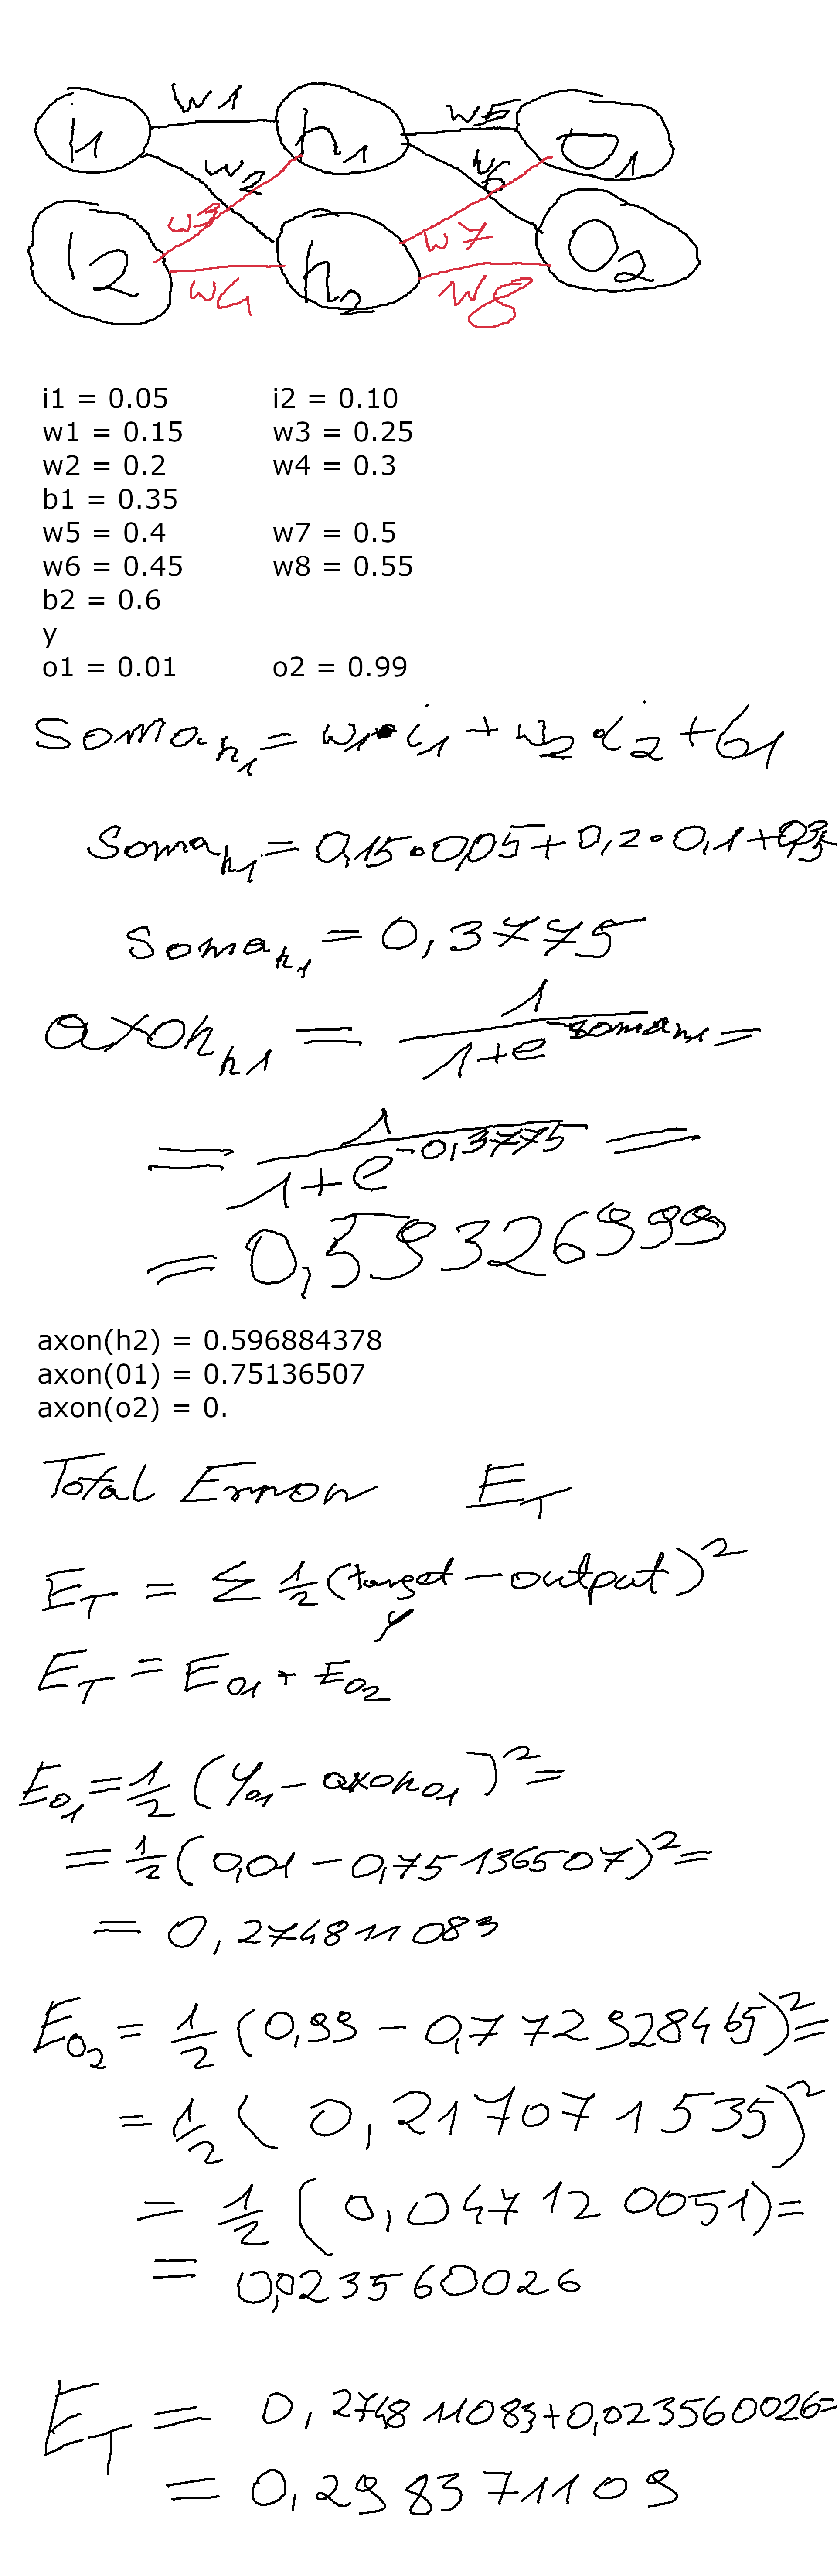 w1 w5
i1 h1 o1
w2 w6
w3 w7
i2 h2 o2
w4 w8
i1 = 0.05 i2 = 0.10
w1 = 0.15 w3 = 0.25
w2 = 0.2 w4 = 0.3
b1 = 0.35
w5 = 0.4 w7 = 0.5
w6 = 0.45 w8 = 0.55
b2 = 0.6
y
o1 = 0.01 o2 = 0.99
soma h1 = w1 • i1 + w2 • i2 + b1
soma h1 = 0,15 • 0,05 + 0,2 • 0,1 + 0,35
soma h1 = 0,3775
axon h1 = 1 / 1+e^-soma h1 =
= 1 / 1+e^-0,3775 =
= 0,59326999
axon(h2) = 0.596884378
axon(01) = 0.75136507
axon(o2) = 0.
Total Error E_T
E_T = Σ 1/2 (target - output)²
y
E_T = E_O1 + E_O2
E_O1 = 1/2 (y_o1 - axon_o1)² =
= 1/2 (0,01 - 0,75136507)² =
= 0,274811083
E_O2 = 1/2 (0,99 - 0,772928465)² =
= 1/2 (0,217071535)²
= 1/2 (0,047120051) =
= 0,023560026
E_T = 0,274811083 + 0,023560026 =
= 0,298371109